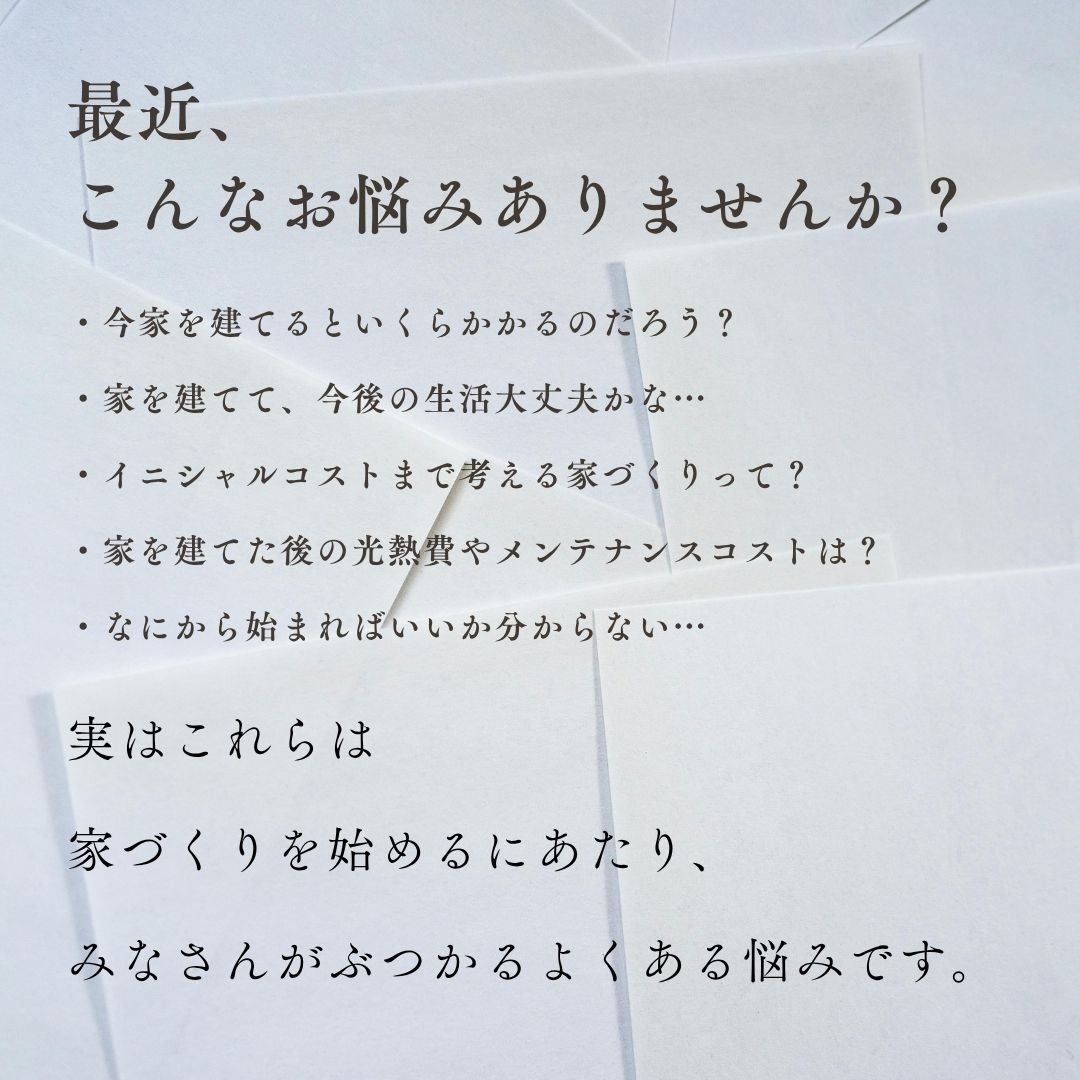 最近、
こんなお悩みありませんか？
・今家を建てるといくらかかるのだろう？
・家を建てて、今後の生活大丈夫かな…
・イニシャルコストまで考える家づくりって？
・家を建てた後の光熱費やメンテナンスコストは？
・なにから始まればいいか分からない…
実はこれらは
家づくりを始めるにあたり、
みなさんがぶつかるよくある悩みです。